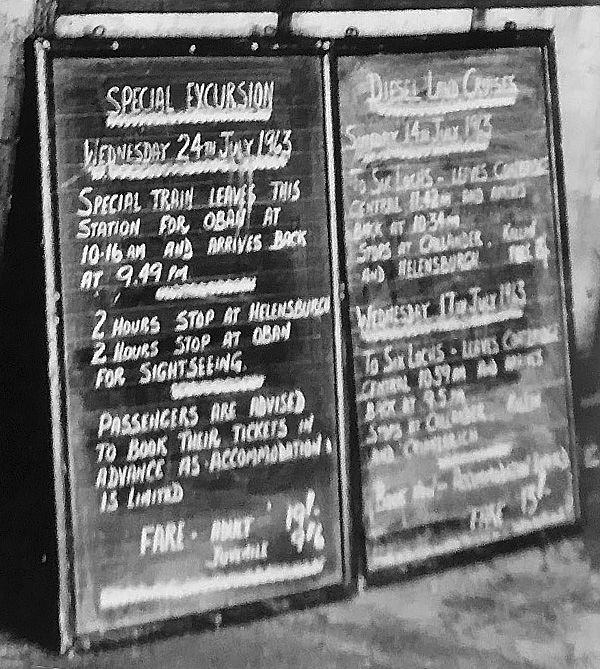 SPECIAL EXCURSION
WEDNESDAY 24TH JULY 1963
SPECIAL TRAIN LEAVES THIS
STATION FOR OBAN AT
10.16 AM AND ARRIVES BACK
AT 9.49 PM
2 HOURS STOP AT HELENSBURGH
2 HOURS STOP AT OBAN
FOR SIGHTSEEING.
PASSENGERS ARE ADVISED
TO BOOK THEIR TICKETS IN
ADVANCE AS ACCOMMODATION
IS LIMITED
FARE - ADULT 19/-
JUVENILE 9/6
DIESEL LAND CRUISES
SUNDAY 14TH JULY 1963
TO SIX LOCHS - LEAVES COATBRIDGE
CENTRAL 11.42AM AND ARRIVES
BACK AT 10.34PM
STOPS AT CALLANDER. KILLIN
AND HELENSBURGH.
WEDNESDAY 17TH JULY 1963
TO SIX LOCHS - LEAVES COATBRIDGE
CENTRAL 10.59AM AND ARRIVES
BACK AT
STOPS AT CALLANDER. KILLIN
AND
BOOK NOW - ACCOMMODATION LIMITED
FARE